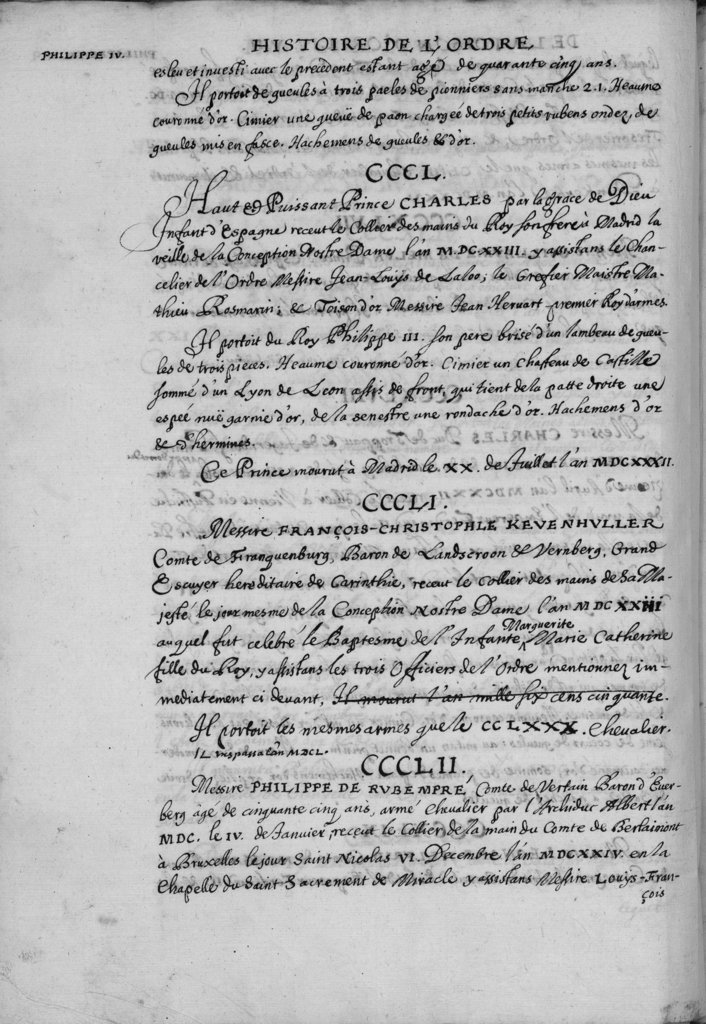 HISTOIRE DE L'ORDRE
PHILIPPE IV.
esleu et investi avec le precedent estant agé de quarante cinq ans.
Il portoit de gueules à trois paeles de pionniers sans manche 2.1. Heaume
couronné d'or. Cimier une queuë de paon chargée de trois petits rubens ondez de
gueules mis en fasce. Hachemens de gueules & d'or.
CCCL.
Haut & Puissant Prince CHARLES par la Grace de Dieu
Infant d'Espagne receut le Collier des mains du Roy son frere à Madrid la
veille de la Conception Nostre Dame l'an MDCXXIII. y assistans le Chan-
celier de l'Ordre Messire Jean-Louys de Laloo; le Grefier Maistre Ma-
thieu Rosmarin; & Toison d'or Messire Jean Hervart premier Roy d'armes.
Il portoit du Roy Philippe III. son pere brisé d'un lambeau de gueu-
les de trois pieces. Heaume couronné d'or. Cimier un Chasteau de Castille
sommé d'un Lyon de Leon assis de front, qui tient de la patte droite une
espeé nuë garnie d'or, de la senestre une rondache d'or. Hachemens d'or
& d'hermines.
Ce Prince mourut à Madrid le XX. de Juillet l'an MDCXXXII.
CCCLI.
Messire FRANÇOIS-CHRISTOPHLE KEVENHVLLER
Comte de Franquenburg, Baron de Landscroon & Vernberg, Grand
Escuyer hereditaire de Carinthie, receut le Collier des mains de Sa Ma-
jesté le jour mesme de la Conception Nostre Dame l'an MDCXXIII
auquel fut celebré le Baptesme de l'Infante Marguerite Marie Catherine
fille du Roy, y assistans les trois Officiers de l'Ordre mentionnez im-
mediatement ci devant, Il mourut l'an mille six cens cinquante.
Il portoit les mesmes armes que le CCLXXX. Chevalier.
IL trespassa l'an MDCL.
CCCLII.
Messire PHILIPPE DE RVBEMPRÉ, Comte de Vertain Baron d'Ever-
berg âgé de cinquante cinq ans, armé Chevalier par l'Archiduc Albert l'an
MDC. le IV. de Janvier, receut le Collier de la main du Comte de Berlaimont
à Bruxelles le jour Saint Nicolas VI. Decembre l'an MDCXXIV. en la
Chapelle du Saint Sacrement de Miracle y assistans Messire Louys-Fran-
çois